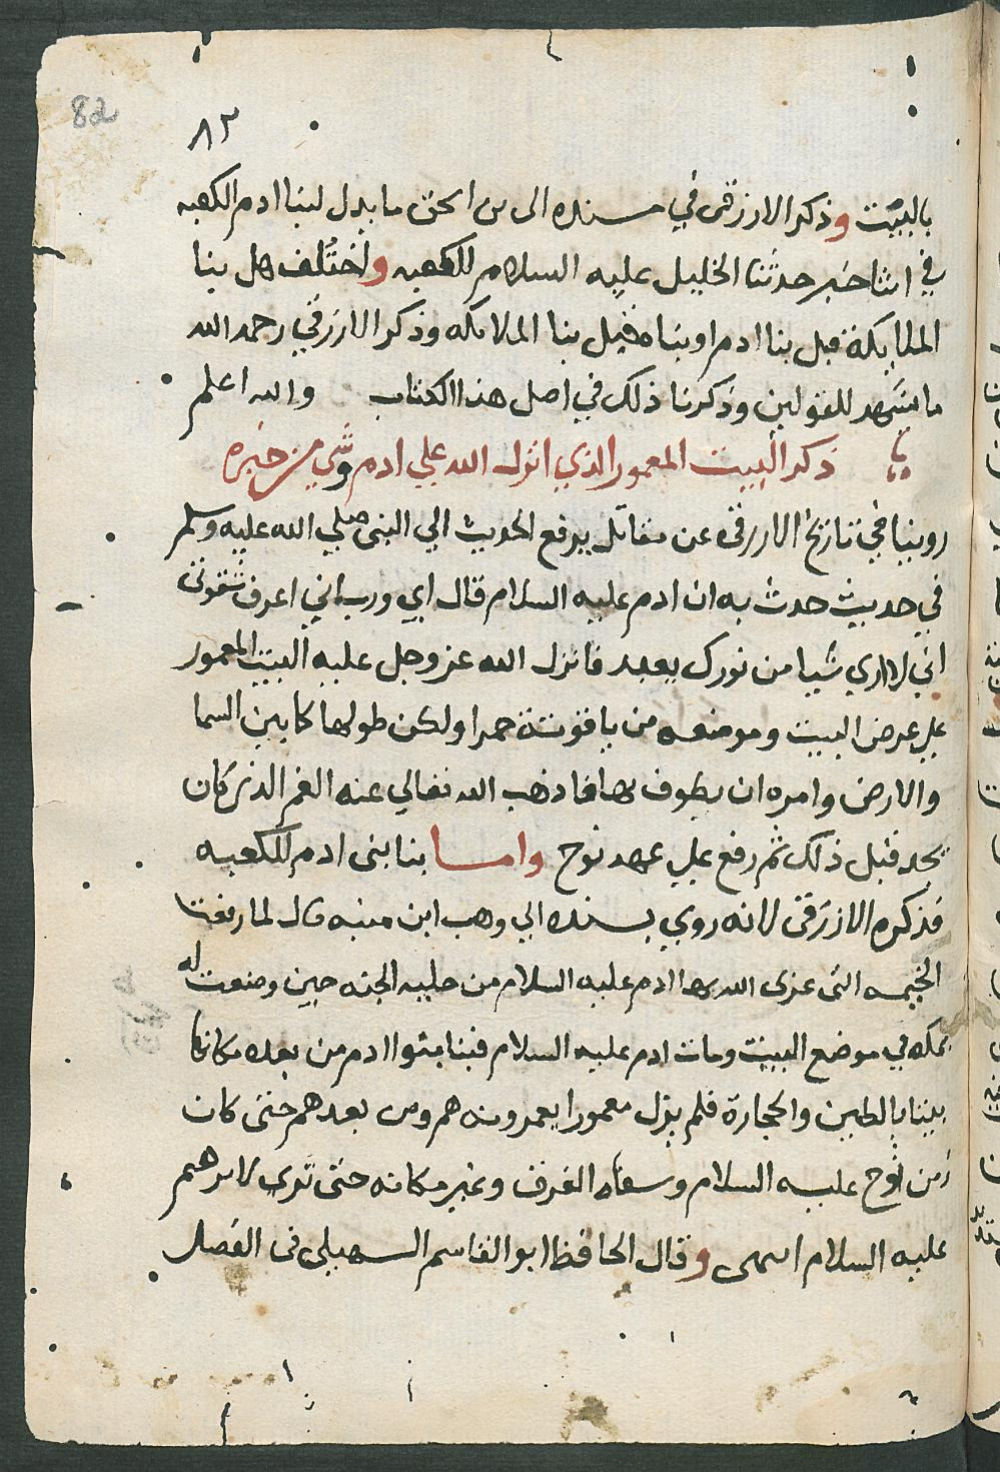 82
٨٢
بالبيت وذكر الازرقى في مسنده الى بن اسحق ما يدل لبنا ادم الكعبه
في اثنا خبر حدثنا الخليل عليه السلام للكعبه واختُلف هل بنا
الملايكة قبل بنا ادم او بناه قبل بنا الملايكه وذكر الازرقي رحمه الله
ما يشهد للقولين وذكرنا ذلك في اصل هذا الكتاب والله اعلم
ذكر البيت المعمور الذي انزل الله علي ادم وشي من خبره
روينا في تاريخ الازرقى عن مقاتل يرفع الحديث الي النبى صلي الله عليه وسلم
في حديث حدث به ان ادم عليه السلام قال اي ورب اني اعرف شقوتى
اني لا ارى شيا من نورك يعبد فانزل الله عز وجل عليه البيت المعمور
علي عرض البيت وموضعه من ياقوتة حمرا ولكن طولها كما بين السما
والارض وامره ان يطوف بها فاذهب الله تعالي عنه الغم الذى كان
يجد قبل ذلك ثم رفع علي عهد نوح واما بنا بنى ادم للكعبه
فذكره الازرقى لانه روي بسنده الي وهب ابن منبه قال لما رفعت
الخيمه التى عزى الله بها ادم عليه السلام من حليه الجنه حين وضعت له
بمكه في موضع البيت ومات ادم عليه السلام فبنا بنوا ادم من بعده مكانها
بيتا بالطين والحجارة فلم يزل معمورا يعمرونه هم ومن بعدهم حتى كان
زمن نوح عليه السلام الغرق وغير مكانه حتى لابرهيم
عليه السلام انتهى وقال الحافظ ابو القاسم السهيلى فى الفصل